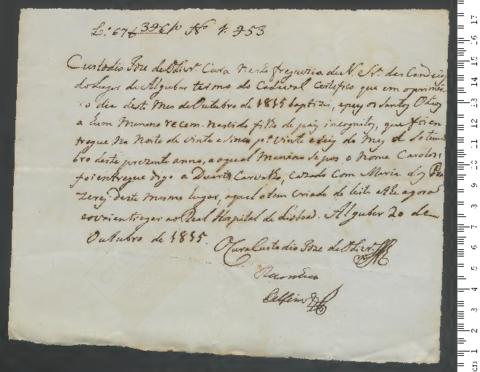 Custodio Joze de Olivr.ª Cura nesta freguezia de N. Sr.ª da Conceição
do Lugar de Alguber termo do Cadaval Certefico que em o primeiro
dia deste Mes de Outubro de 1815 baptizei, e puz os Santos Oleos
a hum Menino recem nascido filho de pais incognitos, que foi en
tregue na Noite de vinte e sinco p.ª vinte e seis do Mez de Setem
bro deste prezente anno, a o qual Menino se pos o Nome Carolos,
foi entregue digo a Duarte Carvalho, cazado Com Maria dos
deste mesmo lugar, o qual o tem Criado de leite athe agora
entregar ao Real Hospital de Lisboa. Alguber 20 de
Outubro de 1815.
O Cura Custodio Joze de Olivr.ª